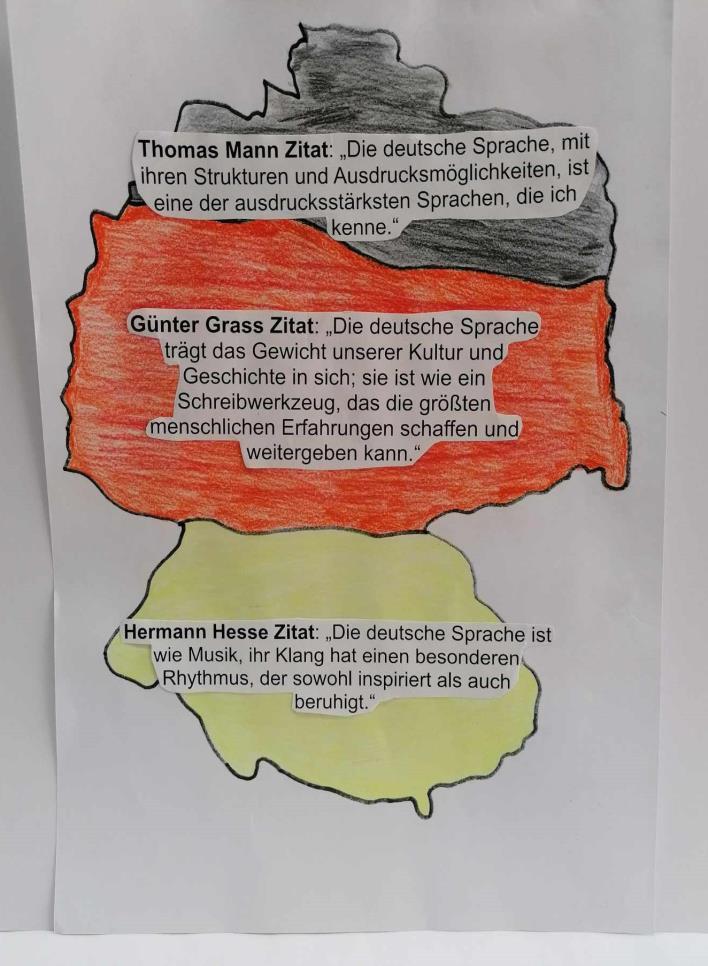 Thomas Mann Zitat: „Die deutsche Sprache, mit
ihren Strukturen und Ausdrucksmöglichkeiten, ist
eine der ausdrucksstärksten Sprachen, die ich
kenne.“
Günter Grass Zitat: „Die deutsche Sprache
trägt das Gewicht unserer Kultur und
Geschichte in sich; sie ist wie ein
Schreibwerkzeug, das die größten
menschlichen Erfahrungen schaffen und
weitergeben kann.“
Hermann Hesse Zitat: „Die deutsche Sprache ist
wie Musik, ihr Klang hat einen besonderen
Rhythmus, der sowohl inspiriert als auch
beruhigt.“